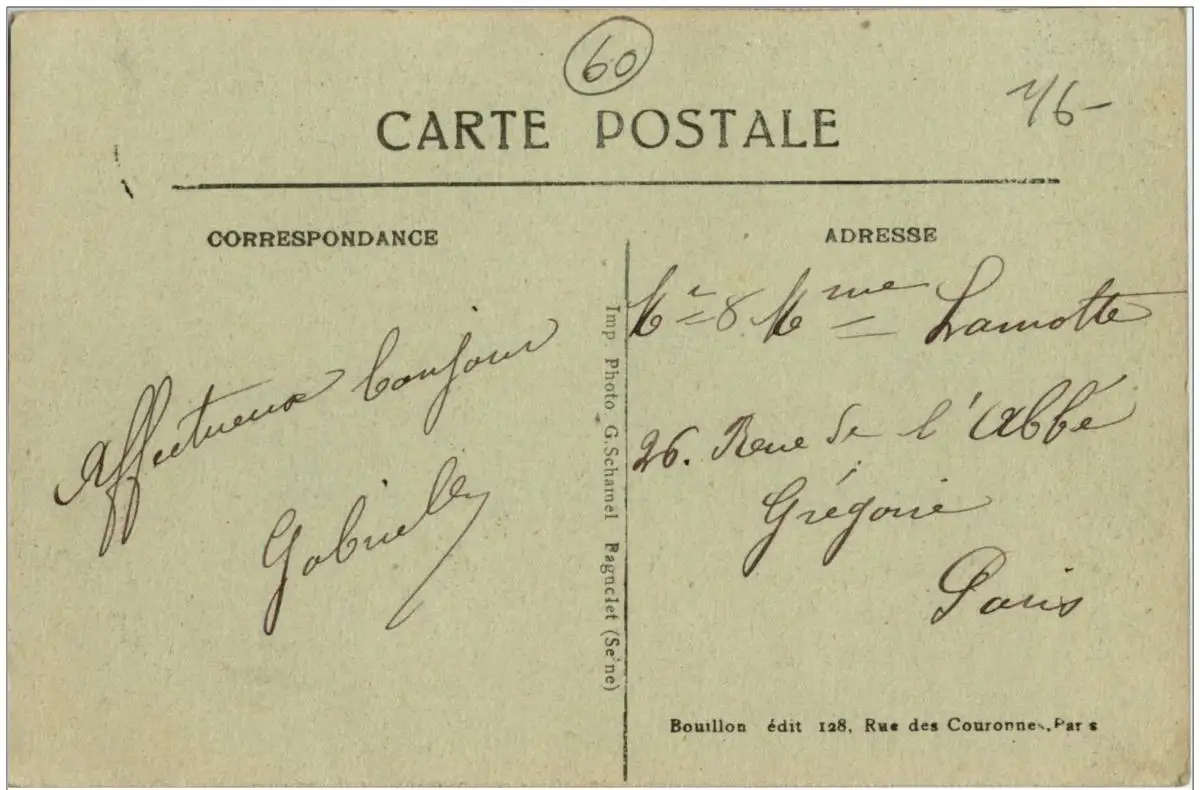 60
CARTE POSTALE
CORRESPONDANCE
Affectueux bonjour
Gabrielle
Imp. Photo G. Schamel Bagnolet (Seine)
ADRESSE
Mr & Mme Lamotte
26. Rue de l'Abbé
Grégoire
Paris
Bouillon édit 128, Rue des Couronnes, Paris